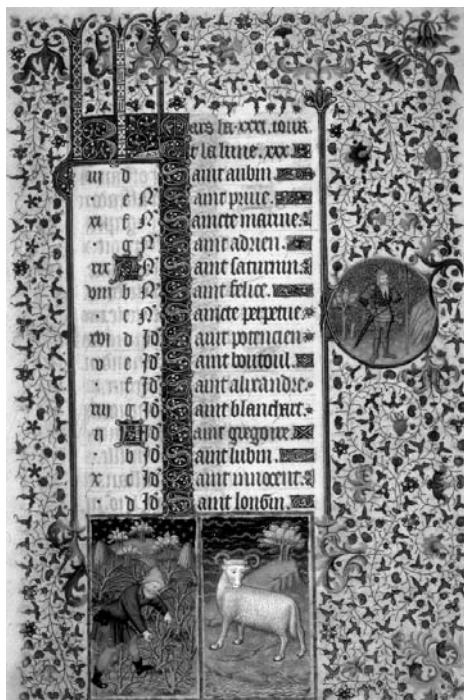 KL Mars ha .xxxi. iours.
Et la lune .xxx.
iii d Saint aubin.
e N Saint priue.
xi f N Saincte marine.
g N Saint adrien.
xix A N Saint saturnin.
viii b N Saint felice.
c N Saincte perpetue.
xvi d Id Saint potencien.
v e Id Saint boutoul.
f Id Saint alixandre.
xiii g Id Saint blanchart.
ii A Id Saint gregoire.
b Id Saint lubin.
x c Id Saint innocent.
d Id Saint longin.